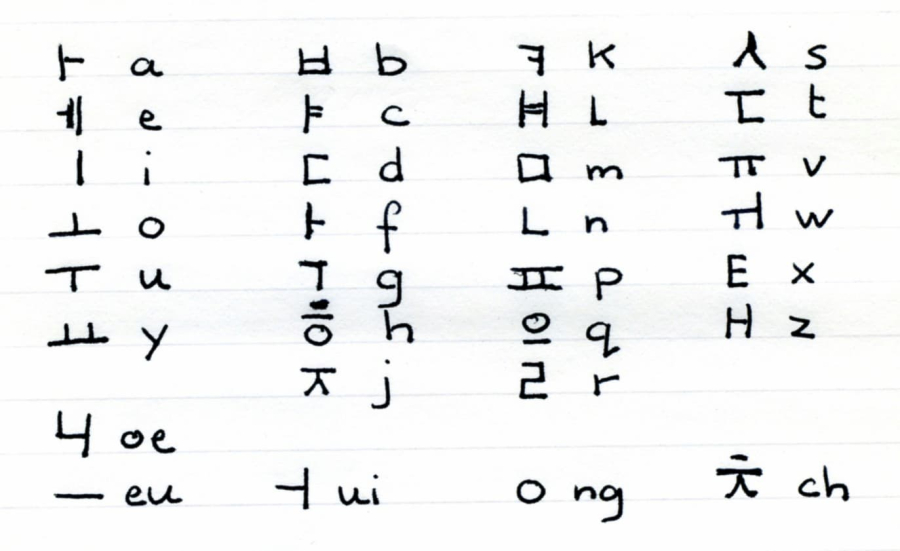 ㅏ a ㅂ b ㅋ K ㅅ s
ㅔ e c L t
ㅣ i ㄷ d ㅁ m ㅠ v
ㅗ o ㅏ f ㄴ n w
ㅜ u g ㅍ p E x
ㅛ y ㅎ h q H z
ㅈ j ㄹ r
oe
ㅡ eu ㅓ ui ㅇ ng ㅊ ch